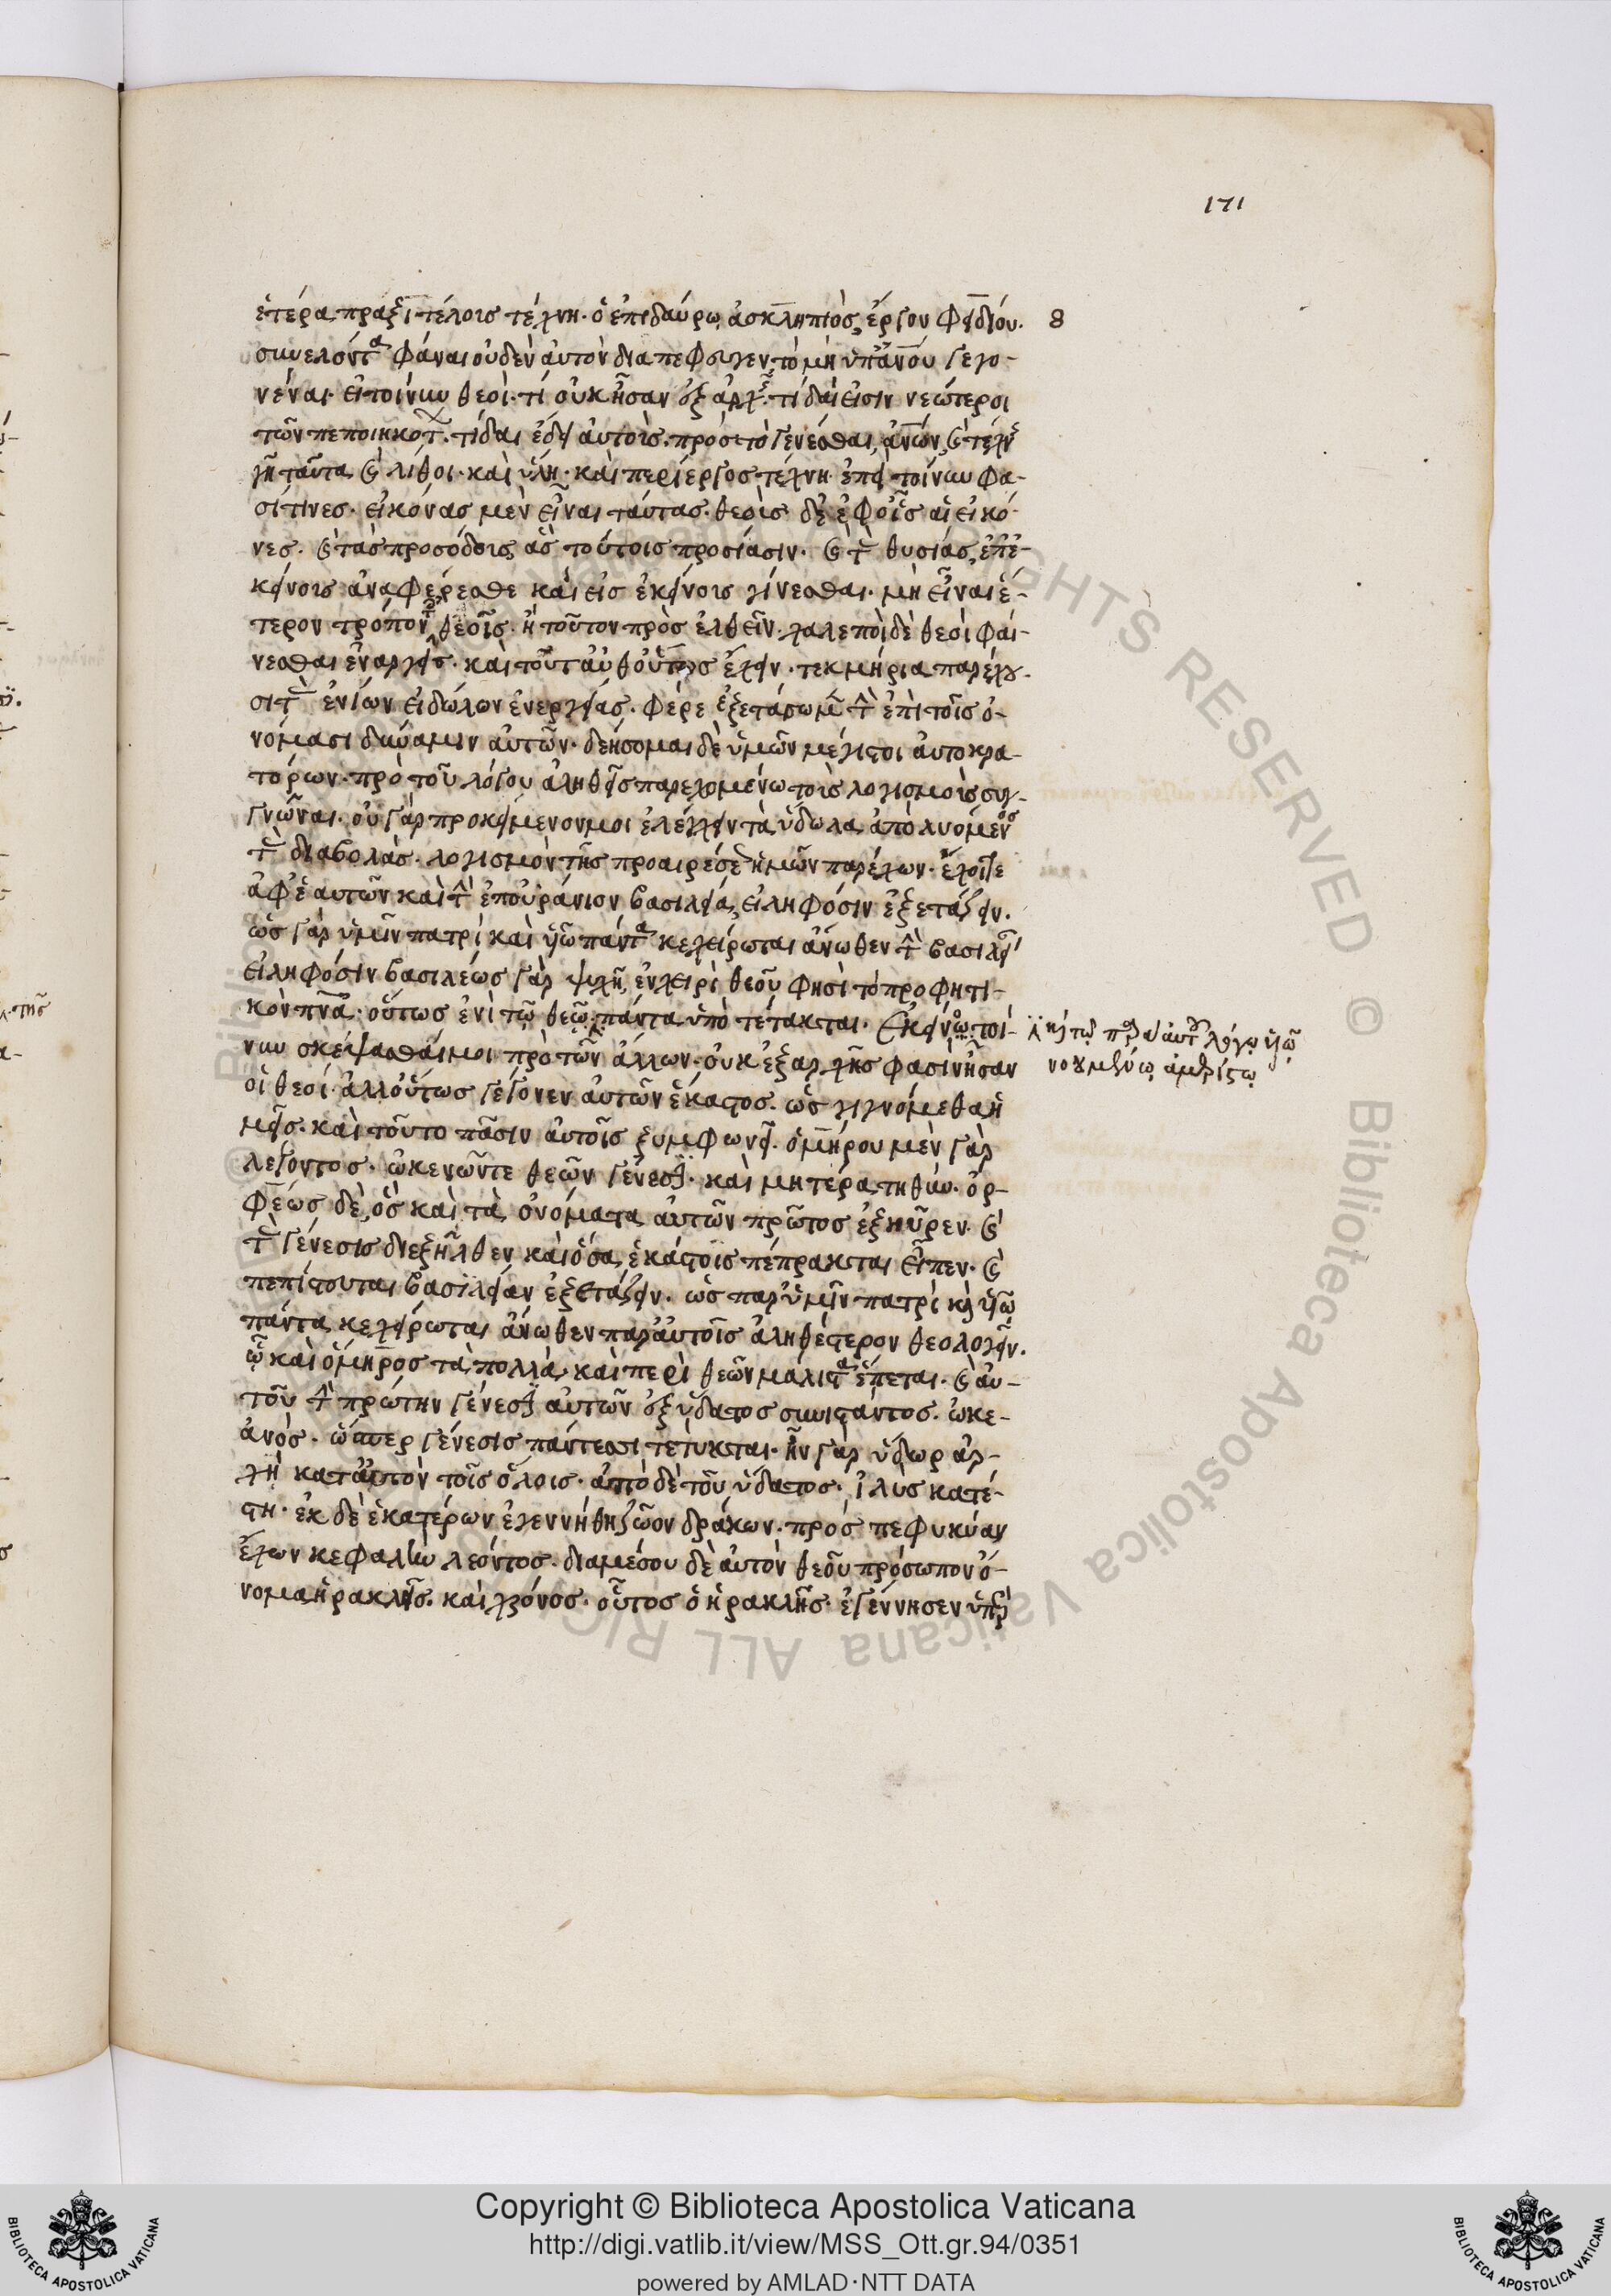 171
ἑτέρα πραξιτέλοις τέχνη· ὁ ἐπιδαύρω ἀσκληπιὸς, ἔργον φειδίου. 8
συνελόντα φάναι οὐδὲν αὐτὸν διαπέφευγεν τὸ μὴ ὑπ' ἀνου γεγο-
νέναι. εἰ τοίνυν θεοὶ· τί οὐκ ἦσαν ἐξ ἀρχῆς· τί δαὶ εἰσιν νεώτεροι
τῶν πεποιηκότων. τί δαι ἔδει αὐτοῖς. πρὸς τὸ γενέσθαι, ἀνων, καὶ τέχνης
γῆ ταῦτα καὶ λίθοι. καὶ ὕλη. καὶ περίεργος τέχνη. ἐπεὶ τοίνυν φα-
σί τινες. εἰκόνας μὲν εἶναι ταύτας. θεοὺς δὲ ἐφ' οἷς αἱ εἰκό-
νες. καὶ τὰς προσόδοις ἃς τούτοις προσίασιν. καὶ τὰς θυσίας, ἐπ' ἐ-
κείνοις ἀναφέρεσθε καὶ εἰς ἐκείνοις γίνεσθαι. μὴ εἶναι ἕ-
τερον τρόπον τοῖς θεοῖς. ἢ τοῦτον προσελθεῖν. χαλεποὶ δὲ θεοὶ φαί-
νεσθαι ἐναργεῖς. καὶ τοῦτ' αὐθ' οὕτως ἔχειν. τεκμήρια παρέχου-
σι τὰς ἐνίων εἰδώλων ἐνεργείας. φέρε ἐξετάσωμεν τὴν ἐπὶ τοῖς ὀ-
νόμασι δύναμιν αὐτῶν. δεήσομαι δὲ ὑμῶν μέγιστοι αὐτοκρα-
τόρων. πρὸ τοῦ λόγου ἀληθεῖς παρεχομένω τοῖς λογισμοῖς συγ-
γνῶναι. οὐ γὰρ προκείμενον μοι ἐλέγχειν τὰ ὕδωλα, ἀπολυόμενος
τὰς διαβολὰς. λογισμὸν τῆς προαιρέσεως ἡμῶν παρέχων. ἔχοιτε
ἀφ' ἑαυτῶν καὶ τὴν ἐπουράνιον βασιλείαν, εἰληφόσιν ἐξετάζειν.
ὡς γὰρ ὑμῖν πατρὶ καὶ υἱῶ πάντα κεχείρωται ἄνωθεν τὴν βασιλείαν
εἰληφόσιν βασιλέως γὰρ ψυχὴ, ἐν χειρὶ θεοῦ φησὶ τὸ προφητι-
κὸν πνα. οὕτως ἑνὶ τῶ θεῶ πάντα ὑπὸ τέτακται. Ἐκείνω τοί-
καὶ τῶ παρ' αὐτοῦ λόγω υἱῶ
νουμένω ἀμερίστω
νυν σκέψασθαί μοι πρὸ τῶν ἄλλων. οὐκ ἐξ ἀρχῆς φασὶν ἦσαν
οἱ θεοί· ἀλλ' οὕτως γέγονεν αὐτῶν ἕκαστος. ὡς γιγνόμεθα ἡ
μεῖς. καὶ τοῦτο πᾶσιν αὐτοῖς ξυμφωνεῖ. ὁμήρου μὲν γὰρ
λέγοντος. ὠκενῶντε θεῶν γένεσιν. καὶ μητέρα τηθύν. ὀρ-
φέως δὲ, ὃς καὶ τὰ ὀνόματα αὐτῶν πρῶτος ἐξηῦρεν. καὶ
τὰς γένεσις διεξῆλθεν καὶ ὅσα ἑκάστοις πέπρακται εἶπεν. καὶ
πεπίστουται βασιλείαν ἐξετάζειν. ὡς παρ' ὑμῖν πατρὶ καὶ υἱῶ
πάντα κεχείρωται ἄνωθεν παρ' αὐτοῖς ἀληθέστερον θεολογεῖν.
ὧ καὶ ὅμηρος τὰ πολλὰ, καὶ περὶ θεῶν μάλιστα ἕπεται. καὶ αὐ-
τοῦ τὴν πρώτην γένεσιν αὐτῶν ἐξ ὕδατος συνιστάντος. ὠκε-
ανὸς. ὥσπερ γένεσις πάντεσσι τέτυκται. ἦν γὰρ ὕδωρ ἀρ-
χὴ κατ' αὐτὸν τοῖς ὅλοις. ἀπὸ δὲ τοῦ ὕδατος. ἰλὺς κατέ-
στη. ἐκ δὲ ἑκατέρων ἐγεννήθη ζῶον δράκων. προσπεφυκύαν
ἔχων κεφαλὴν λέοντος. διαμέσου δὲ αὐτὸν θεοῦ πρόσωπον ὄ-
νομα ἡρακλῆς. καὶ χρόνος. οὗτος ὁ ἡρακλῆς. ἐγέννησεν ὑπερ
Copyright © Biblioteca Apostolica Vaticana
http://digi.vatlib.it/view/MSS_Ott.gr.94/0351
powered by AMLAD·NTT DATA